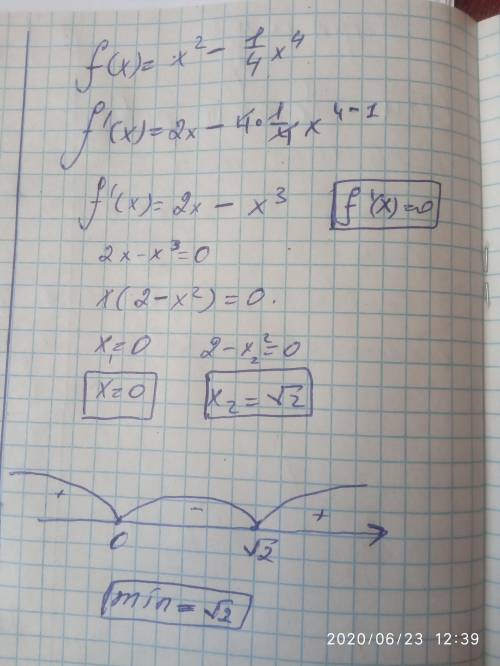 f(x) = x² - 1/4 x⁴
f'(x) = 2x - 4 · 1/4 x⁴⁻¹
f'(x) = 2x - x³ f'(x) = 0
2x - x³ = 0
x(2 - x²) = 0.
x₁ = 0 2 - x₂² = 0
x = 0 x₂ = √2
+ - +
0 √2
min = √2
2020/06/23 12:39